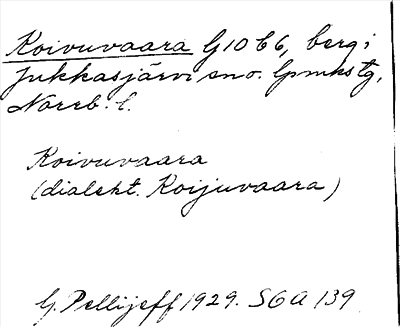 Koivuvaara G10 b6, berg i
Jukkasjärvi sn o. lpmkstg,
Norrb. l.
Koivuvaara
(dialekt. Koijuvaara)
G. Pellijeff 1929. SGA 139